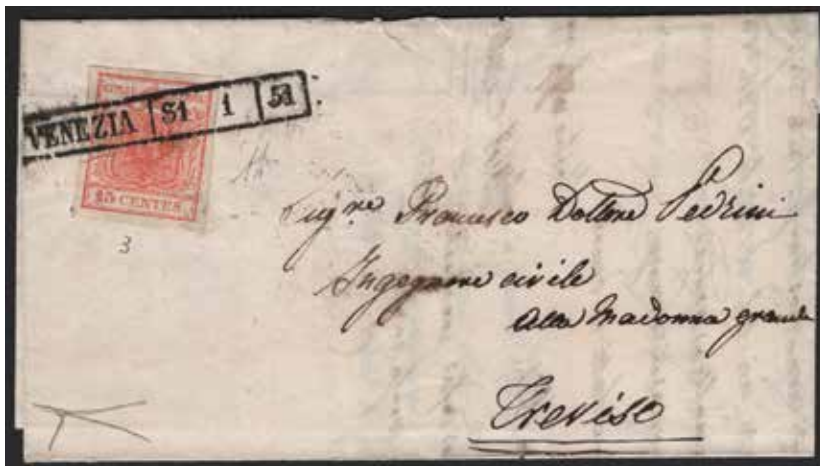 VENEZIA 31 1 51
15 CENTES
3
Sigre Francesco Dottore Pedrini
Ingegnere civile
alla Madonna grande
Treviso